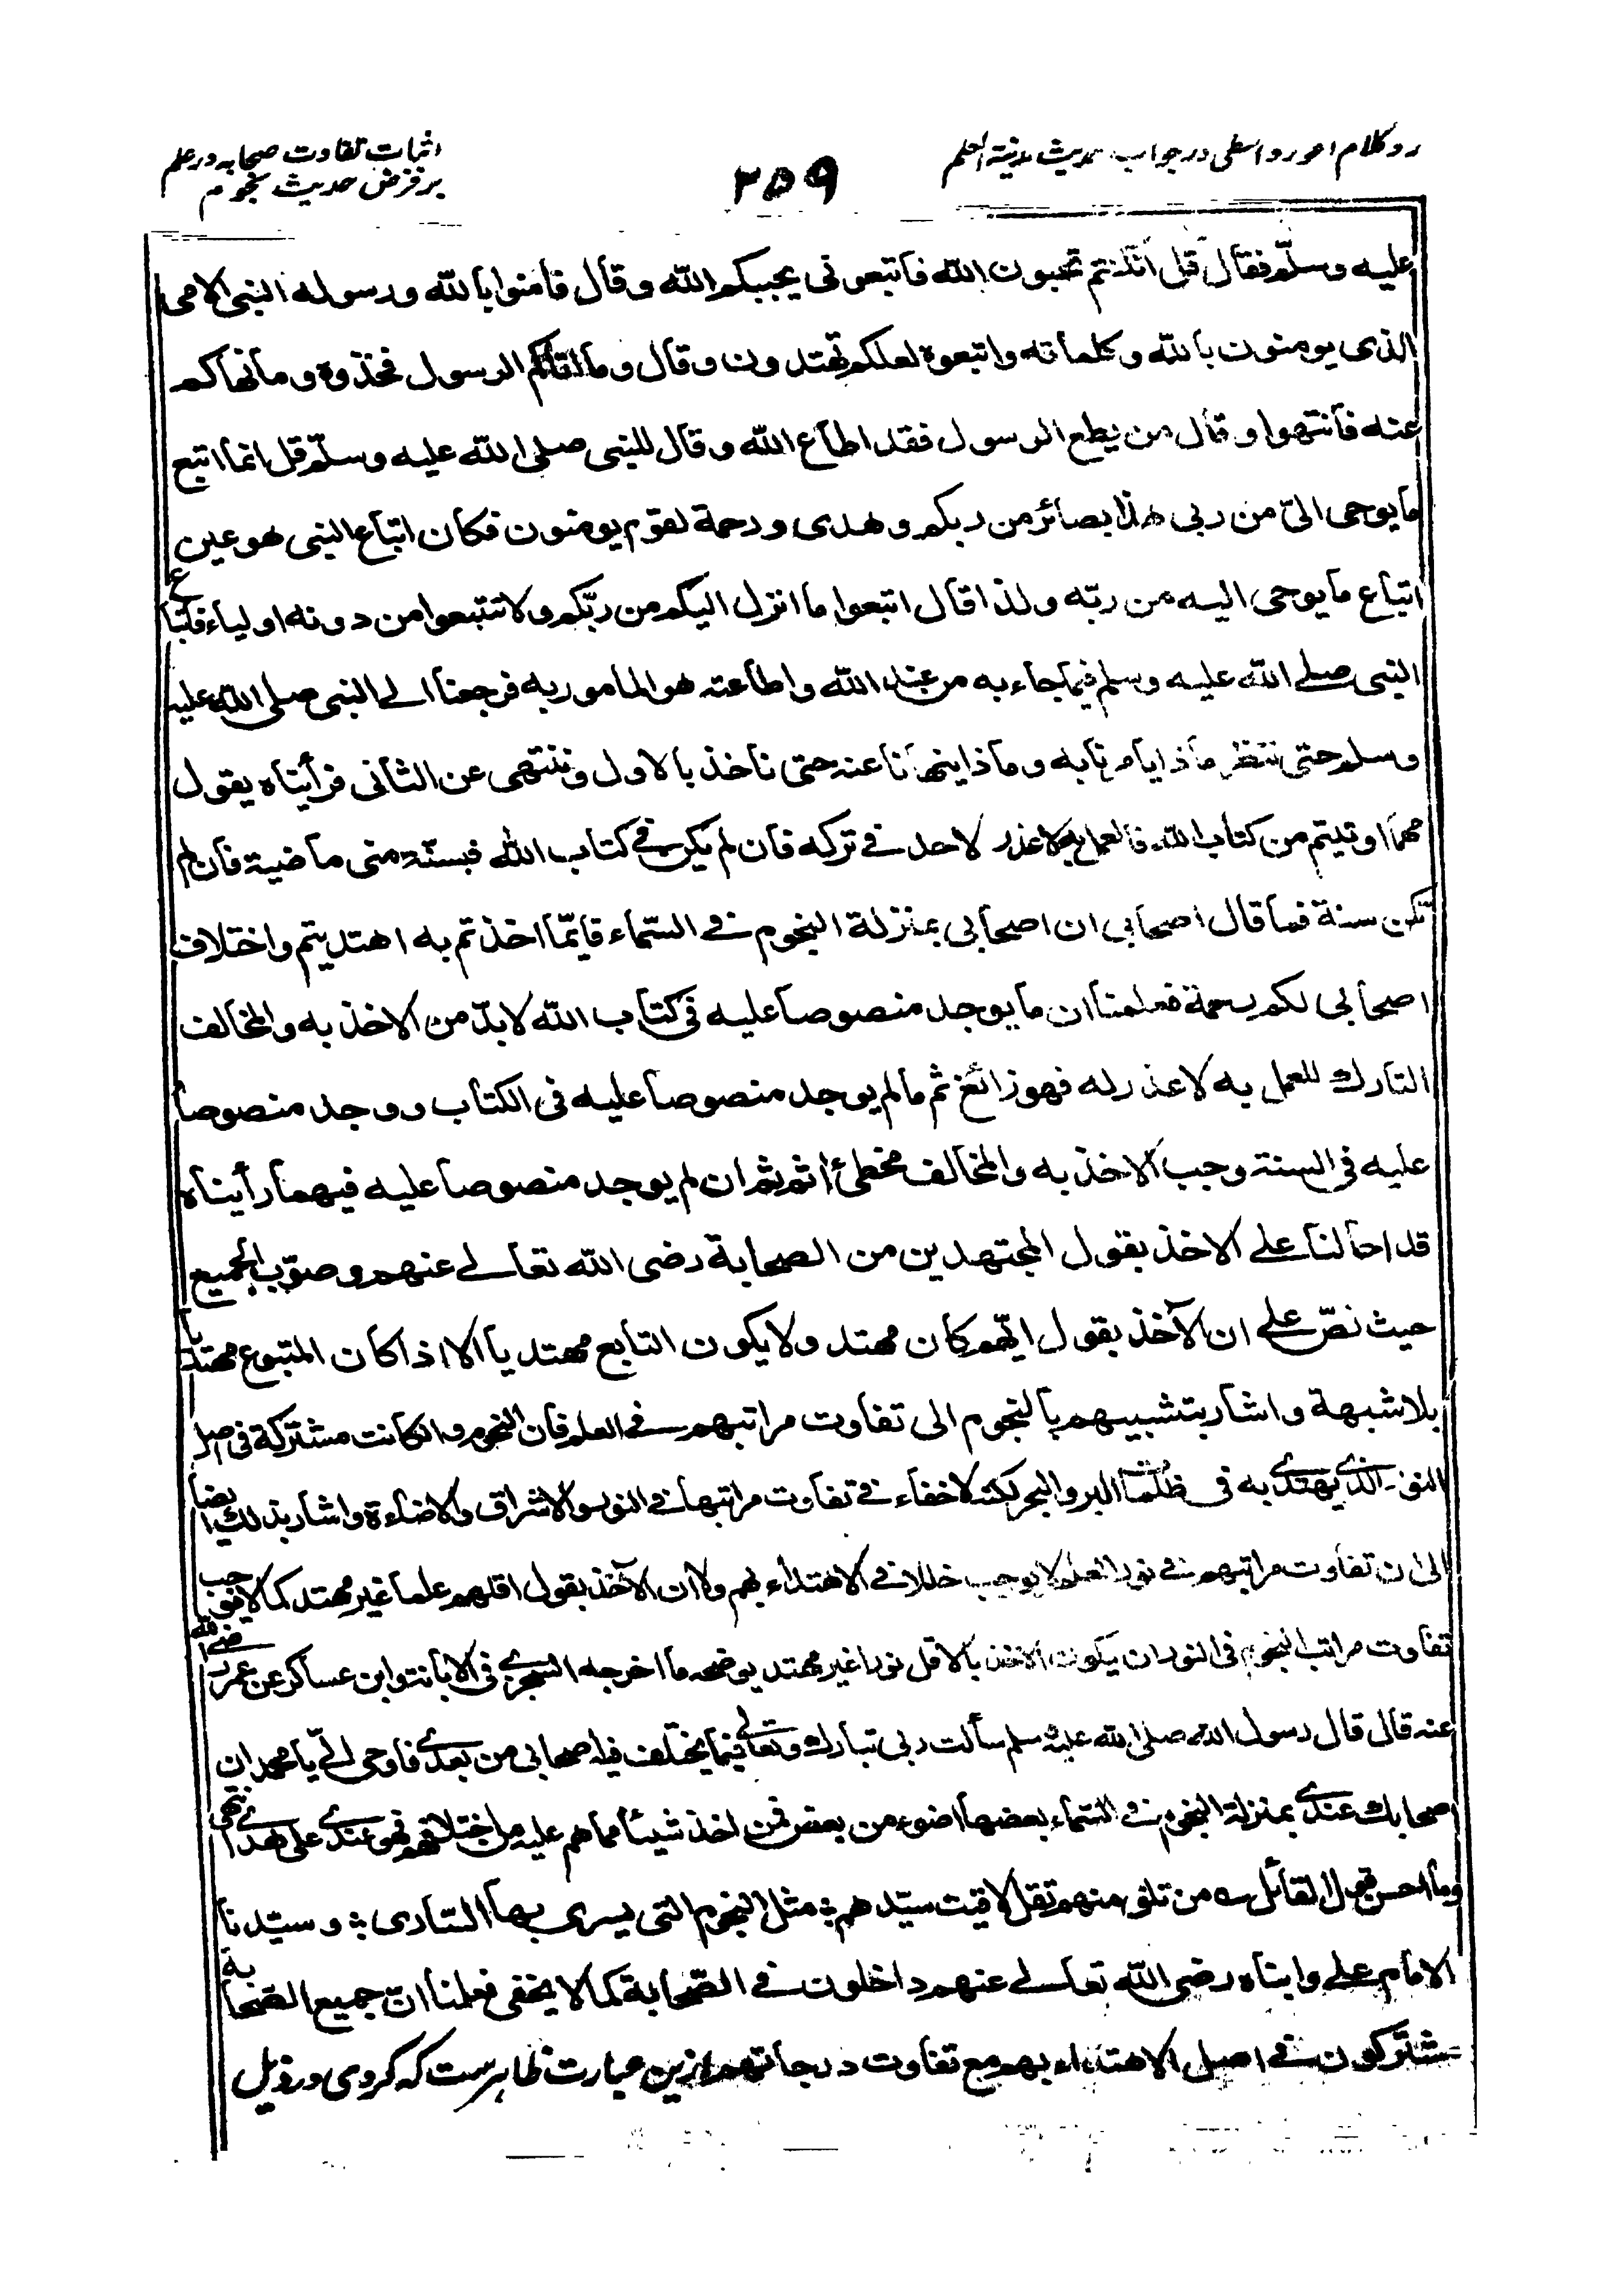 رد کلام اعور واسطی در جواب حدیث مدینة العلم
٢٥٩
اثبات تفاوت صحابه در علم
بر فرض حدیث نجوم
علیه وسلّم فقال قل ان کنتم تحبون الله فاتبعونی یحببکم الله وقال فامنوا بالله ورسوله النبی الامی
الذی یومنون بالله وکلماته واتبعوه لعلکم تهتدون وقال وما اتاکم الرسول فخذوه ومانهاکم
عنه فانتهوا وقال من یطع الرسول فقد اطاع الله وقال للنبی صلی الله علیه وسلّم قل انما اتبع
مایوحی الیّ من ربی هذا بصائر من ربکم وهدی ورحمة لقوم یومنون فکان اتباع النبی هو عین
اتباع مایوحی الیه من ربّه ولذا قال اتبعوا ما انزل الیکم من ربّکم ولا تتبعوا من دونه اولیاء فاتباع
النبی صلے الله علیه وسلم فیما جاء به من عند الله واطاعته هو المامور به فرجعنا الے النبی صلی الله علیه
وسلم حتی ننظر ماذا یامرنا به وماذا ینهانا عنه حتی ناخذ بالاول وننتهی عن الثانی فرأیناه یقول
مهما اوتیتم من کتاب الله فالعمل به لا عذر لاحد فے ترکه فان لم یکن فے کتاب الله فبسنّة منی ماضیة فان لم
تکن سنة فما قال اصحابی ان اصحابی بمنزلة النجوم فے السّماء فایّما اخذتم به اهتدیتم واختلاف
اصحابی لکم رحمة فعلمنا ان مایوجد منصوصا علیه فی کتاب الله لابدّ من الاخذ به والمخالف
التارک للعمل به لا عذر له فهو زائغ ثم مالم یوجد منصوصا علیه فی الکتاب ووجد منصوصا
علیه فی السنة وجب الاخذ به والمخالف مخطئ اثم ثم ان لم یوجد منصوصا علیه فیهما رأیناه
قد احالنا علے الاخذ بقول المجتهدین من الصحابة رضی الله تعالے عنهم وصوّب الجمیع
حیث نصّ علے ان الآخذ بقول ایّهم کان مهتد ولا یکون التابع مهتدیا الا اذا کان المتبوع مهتدیا
بلاشبهة واشار بتشبیههم بالنجوم الی تفاوت مراتبهم فے العلم فان النجوم وان کانت مشترکة فی اصل
النور الذے یهتدے به فی ظلمات البر والبحر لکنه لاخفاء فے تفاوت مراتبها فے النور والاشراق والاضاءة واشار بذلک ایضا
الی ان تفاوت مراتبهم فے نور العلم لا یوجب خللا فے الاهتداء بهم ولا ان الآخذ بقول اقلهم علما غیر مهتد کما لا یوجب
تفاوت مراتب النجوم فی النور ان یکون الاخذ بالاقل نورا غیر مهتد یوضحه ما اخرجه السجزے فی الابانة وابن عساکر عن عمر رضے الله
عنه قال قال رسول الله صلی الله علیه وسلم سألت ربی تبارک وتعالے فیما یختلف فیه اصحابی من بعدے فاوحی الےّ یا محمد ان
اصحابک عندے بمنزلة النجوم فے السّماء بعضها اضوء من بعض فمن اخذ شیئا مما هم علیه من اختلافهم فهو عندے علی هدے انتهی
وما احسن قول القائل سه من تلق منهم تقل لاقیت سیّدهم ؞ مثل النجوم التی یسری بها السّاری ؞ وسیّدنا
الامام علے وابناه رضی الله تعالے عنهم داخلون فے الصّحابة کما لا یخفی فعلمنا انّ جمیع الصّحابة
مشترکون فے اصل الاهتداء بهم مع تفاوت درجاتهم ازین عبارت ظاهرست که کردی در ذیل